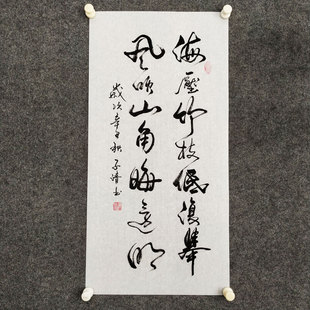 海压竹枝低復舉
风吹山角晦還明
歲次辛丑秋子清书